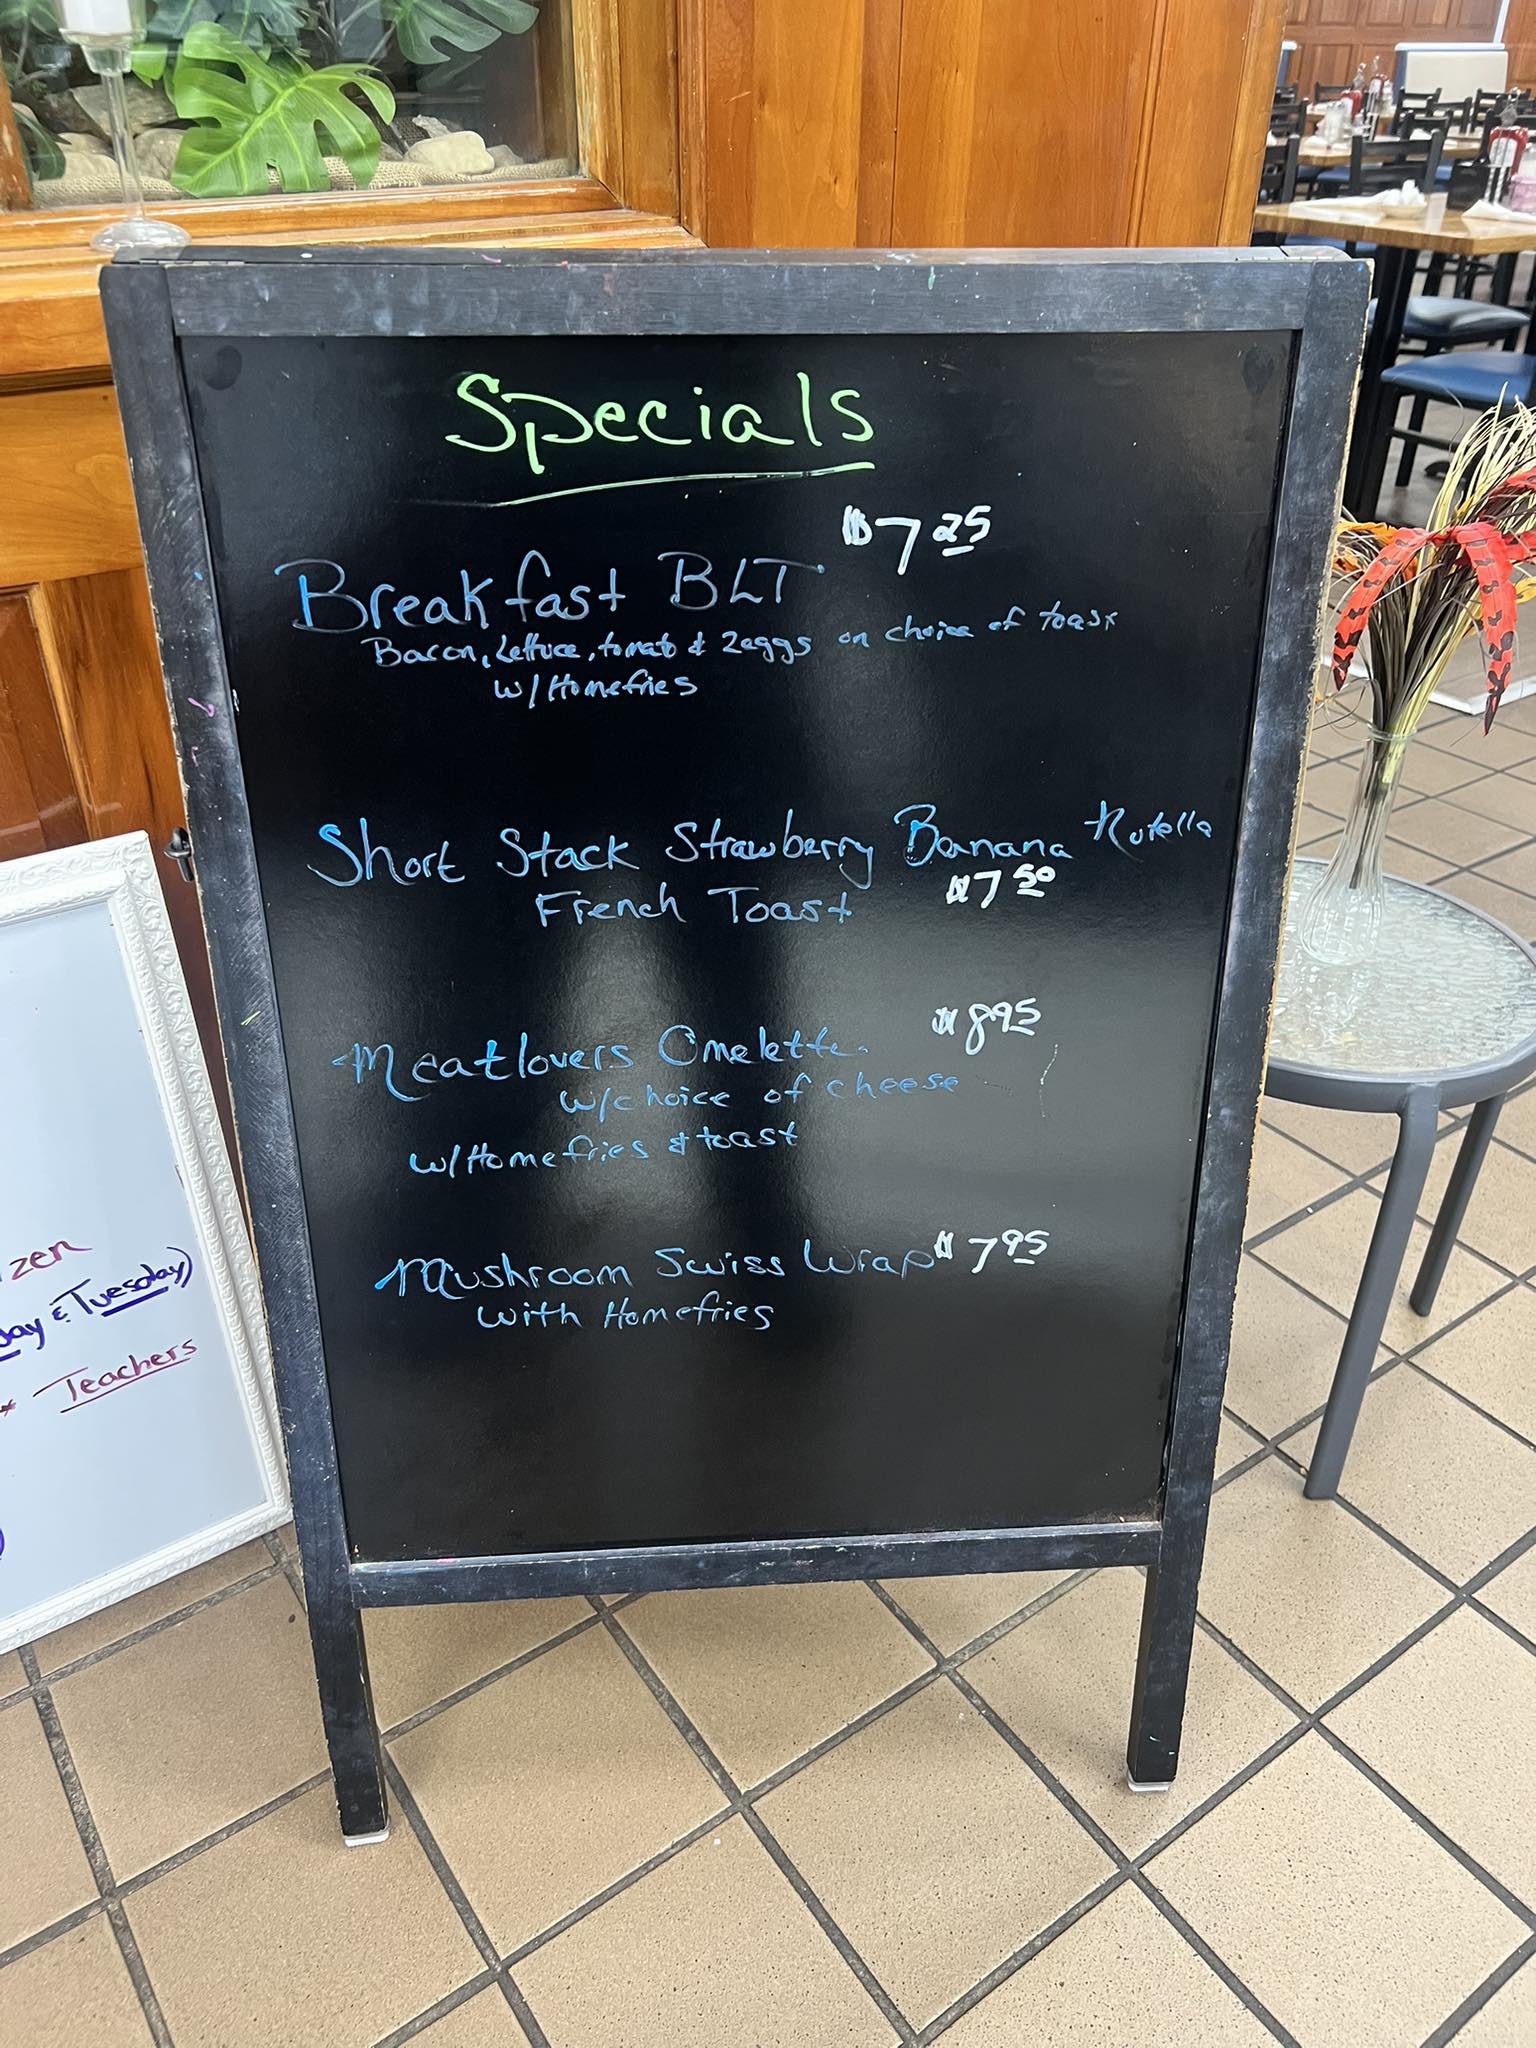 Specials
$7 25
Breakfast BLT
Bacon, Lettuce, tomato & 2eggs on choice of toast
w/Homefries
Short Stack Strawberry Banana Nutella
French Toast $7 50
Meatlovers Omelette $8 95
w/choice of cheese
w/Homefries & toast
Mushroom Swiss Wrap $7 95
with Homefries
zen
day & Tuesday)
* Teachers
)